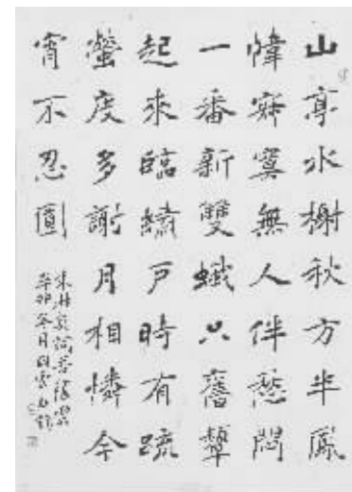 山亭水榭秋方半鳳
幃寂寞無人伴愁悶
一番新雙蛾只舊顰
起來臨繡戶時有疏
螢度多謝月相憐今
宵不忍圓
朱淑真詞菩薩蠻
辛卯冬月